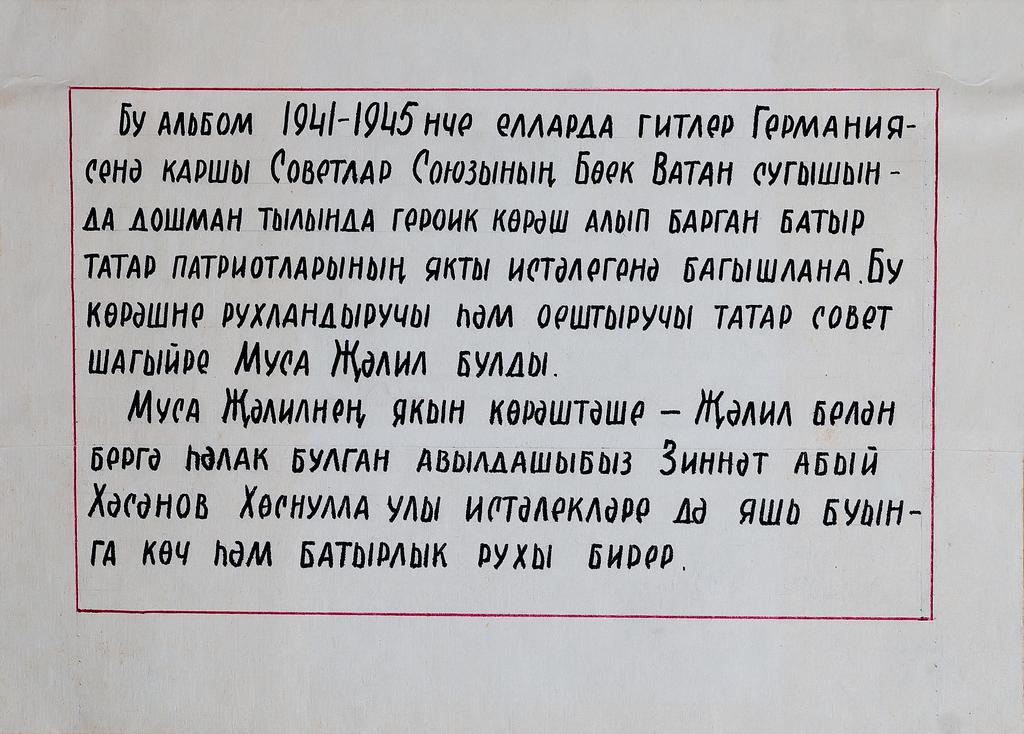 Бу альбом 1941-1945 нче елларда гитлер Германия-
сенә каршы Советлар Союзының Бөек Ватан сугышын-
да дошман тылында героик көрәш алып барган батыр
татар патриотларының якты истәлегенә багышлана. Бу
көрәшне рухландыручы һәм оештыручы татар совет
шагыйре Муса Җәлил булды.
Муса Җәлилнең якын көрәштәше – Җәлил белән
бергә һәлак булган авылдашыбыз Зиннәт абый
Хәсәнов Хөснулла улы истәлекләре дә яшь буын-
га көч һәм батырлык рухы бирер.